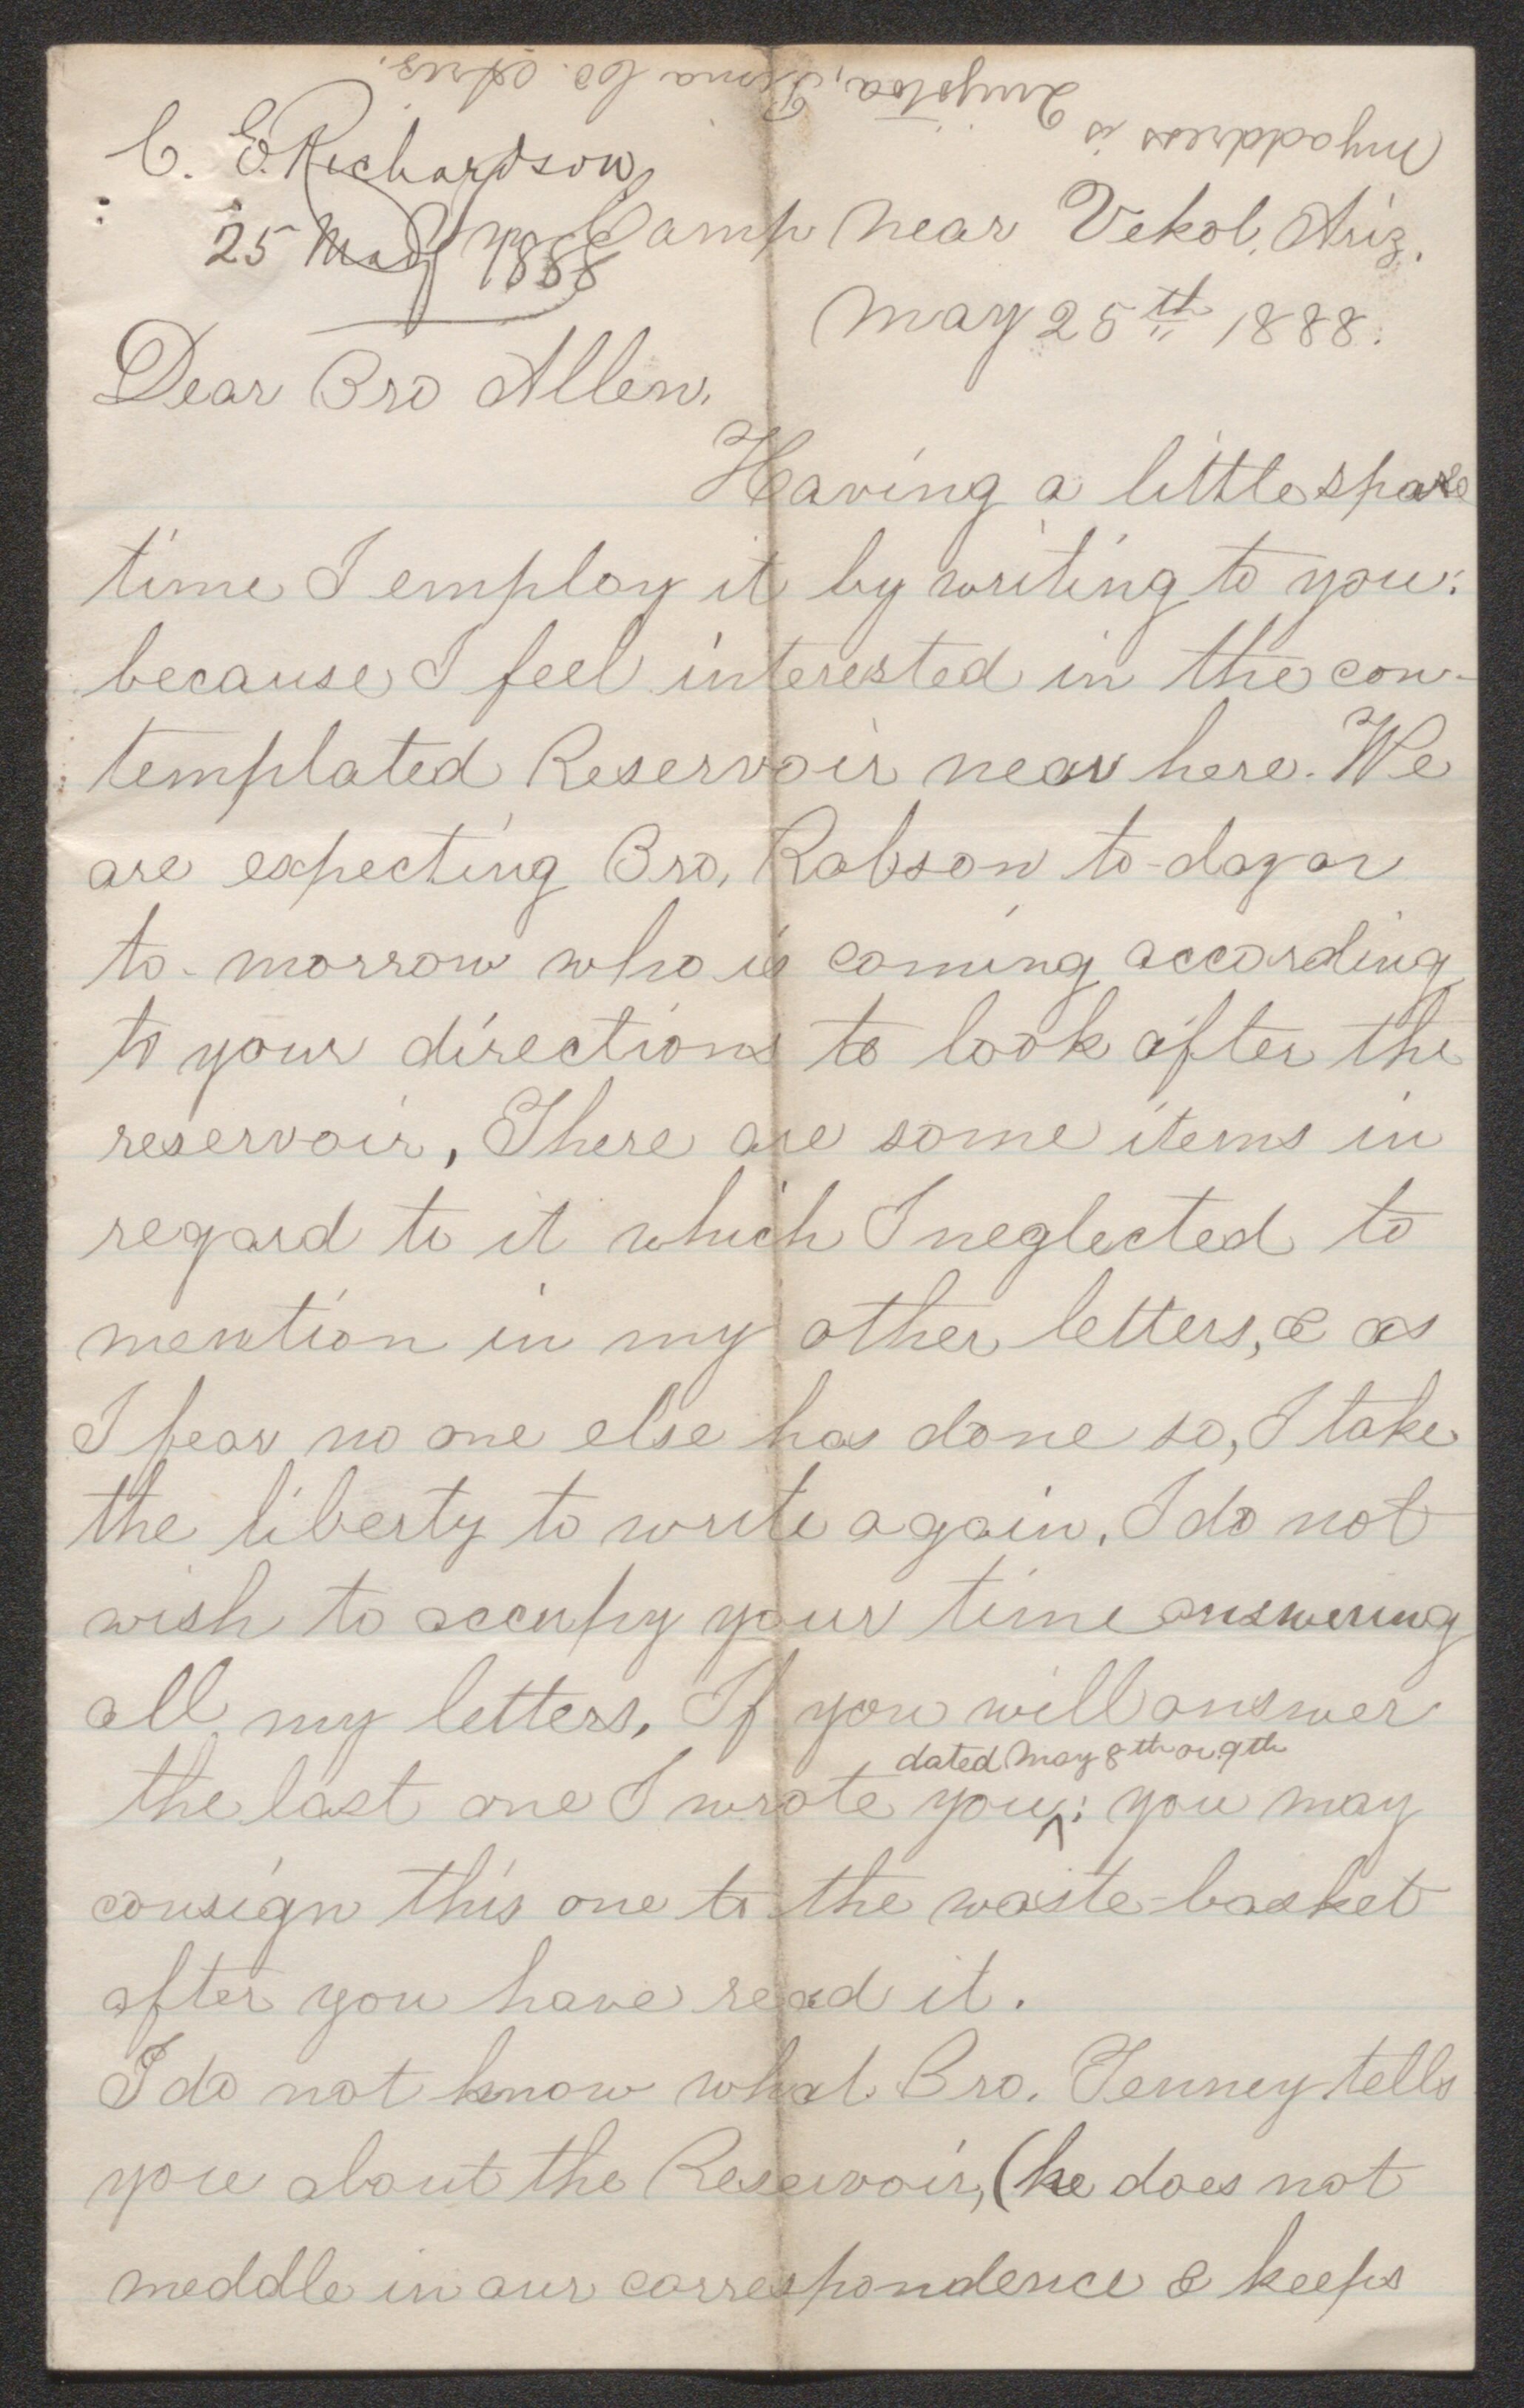 My address is Quijotoa, Pima Co. Ariz.
C. E. Richardson
25 May 1888
Camp near Vekol, Ariz.
May 25th 1888.
Dear Bro Allen,
Having a little spare
time I employ it by writing to you;
because I feel interested in the con-
templated Reservoir near here. We
are expecting Bro, Robson to-day or
to-morrow who is coming according
to your directions to look after the
reservoir, There are some items in
regard to it which I neglected to
mention in my other letters, & as
I fear no one else has done so, I take
the liberty to write again, I do not
wish to occupy your time answering
all my letters, If you will answer
dated May 8th or 9th
the last one I wrote you^; you may
consign this one to the waste-basket
after you have read it.
I do not know what Bro. Tenney tells
you about the Reservoir, (he does not
meddle in our correspondence & keeps